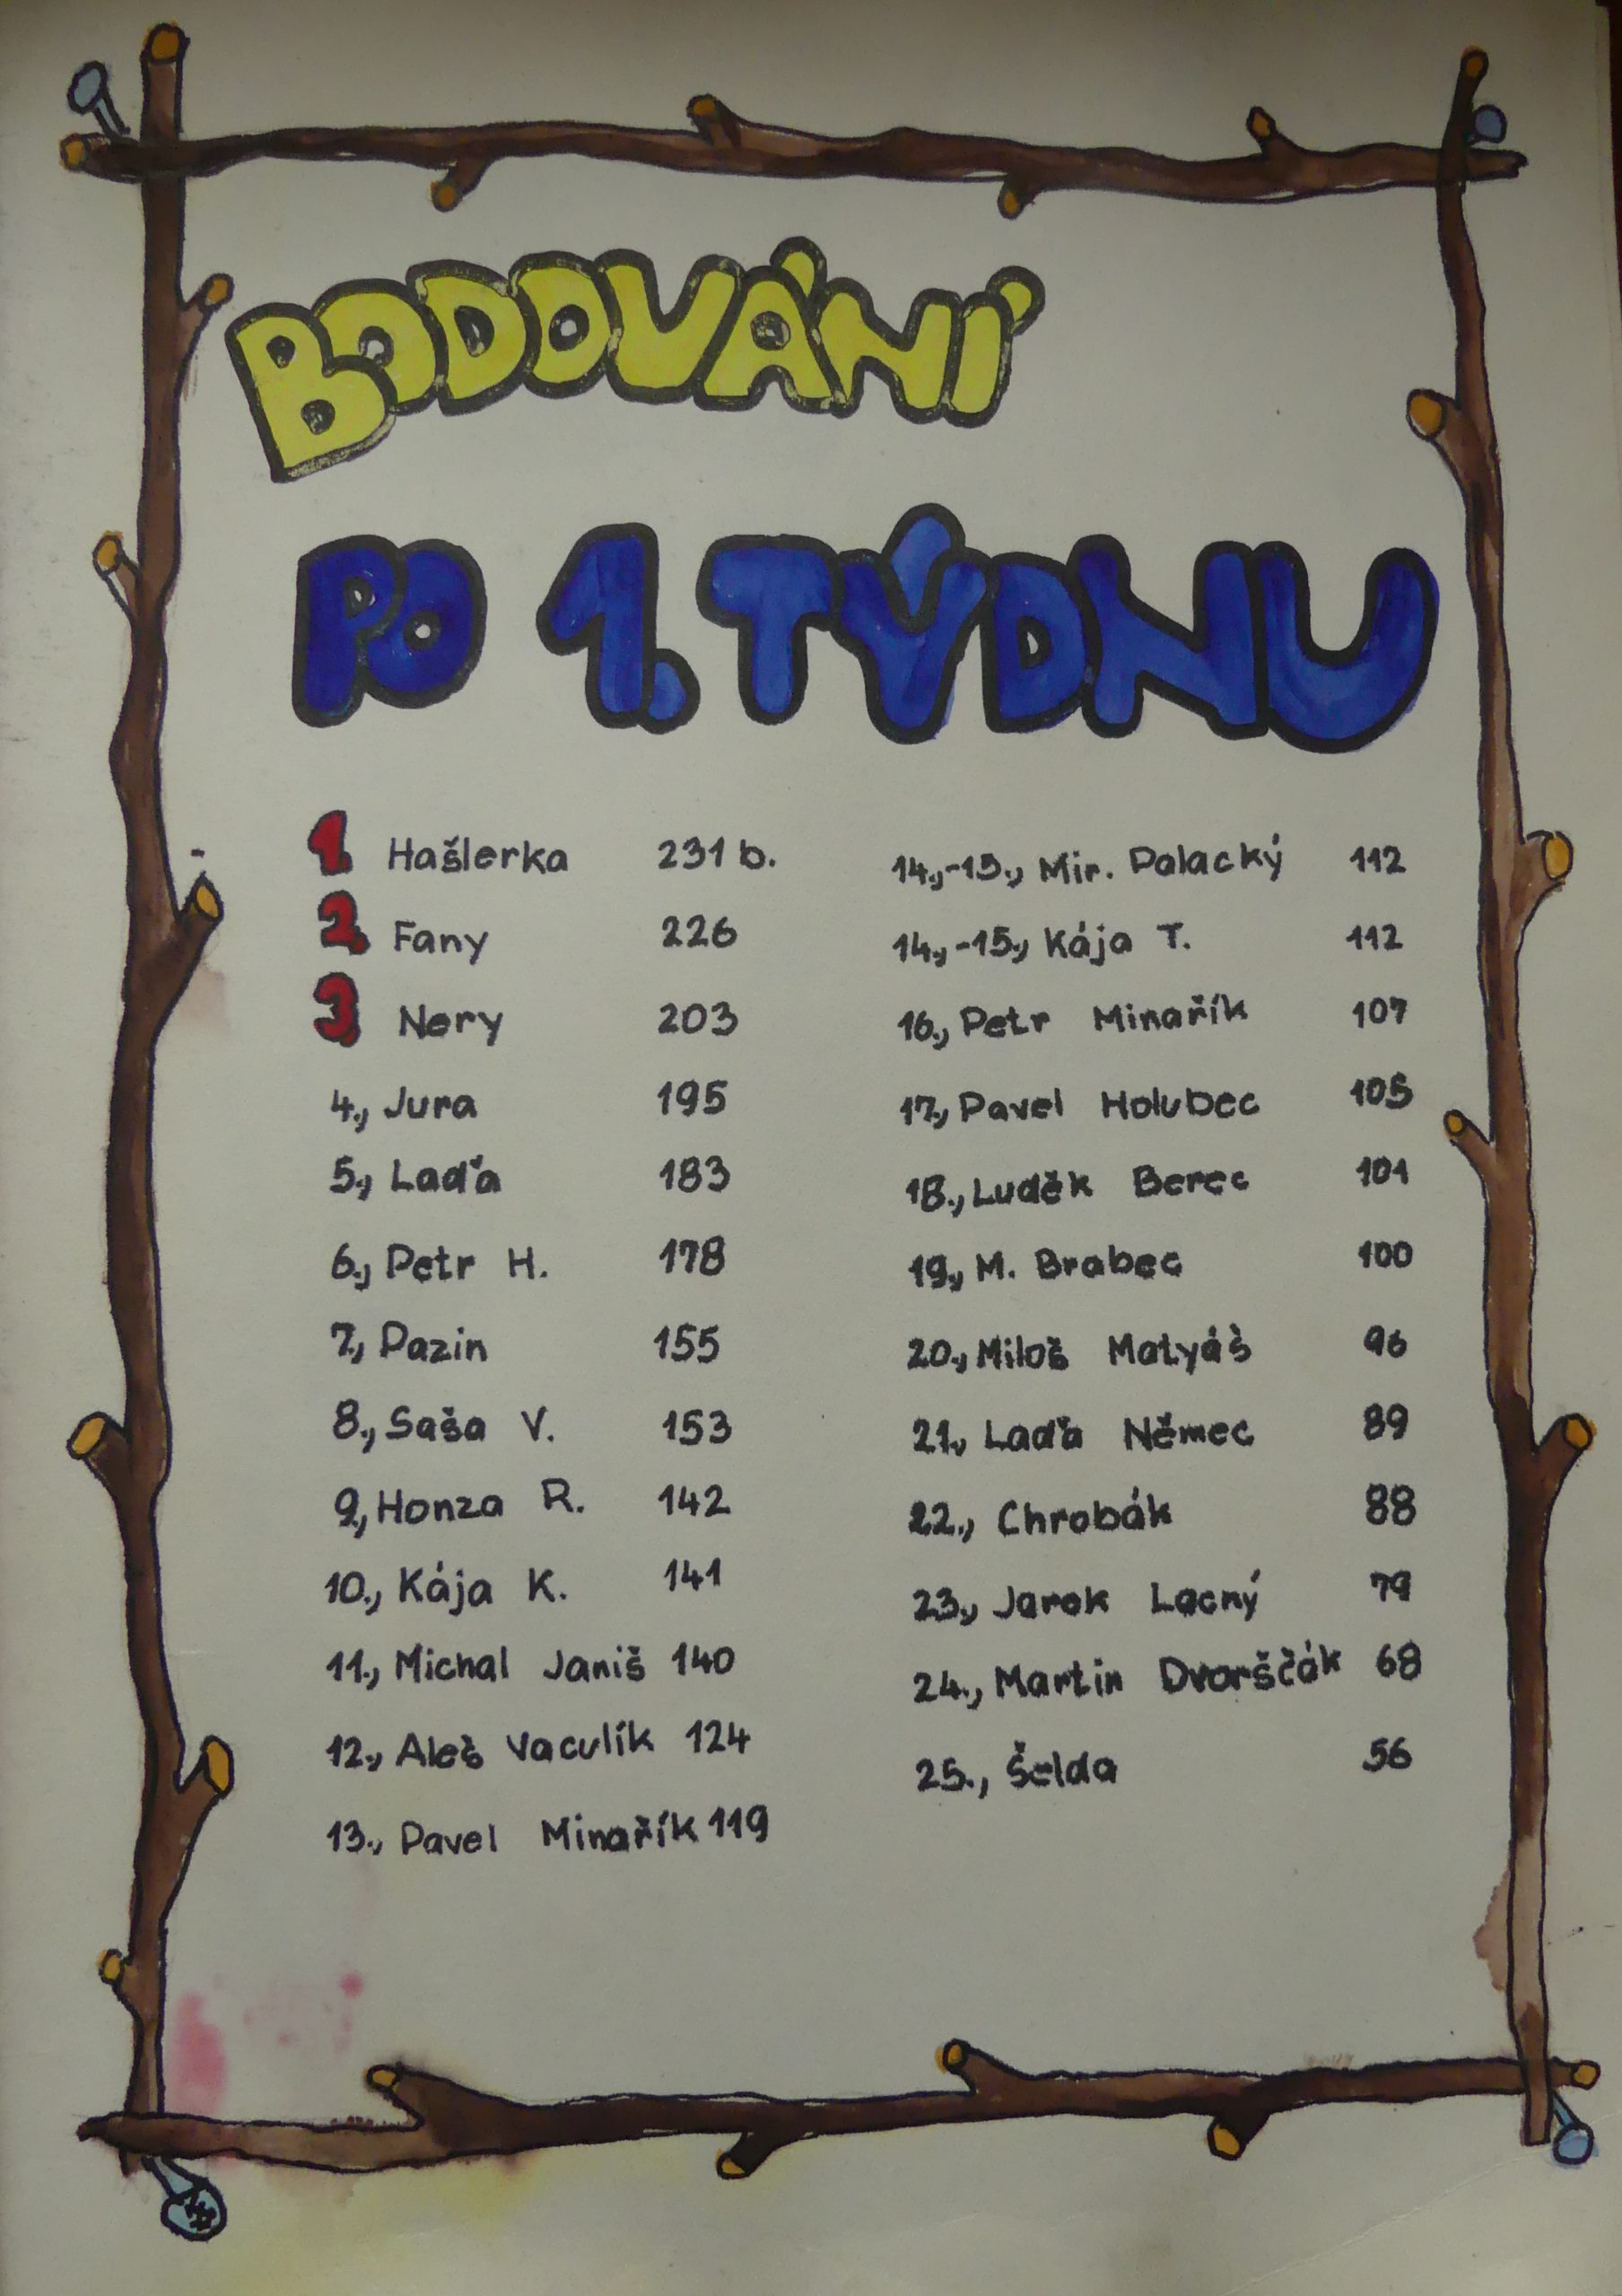 BODOVÁNÍ
PO 1. TÝDNU
1. Hašlerka 231 b.
2. Fany 226
3. Nery 203
4., Jura 195
5., Laďa 183
6., Petr H. 178
7., Pazin 155
8., Saša V. 153
9., Honza R. 142
10., Kája K. 141
11., Michal Janiš 140
12., Aleš Vaculík 124
13., Pavel Minařík 119
14.,-15., Mir. Palacký 112
14.,-15., Kája T. 112
16., Petr Minařík 107
17., Pavel Holubec 105
18., Luděk Berec 101
19., M. Brabec 100
20., Miloš Matyáš 96
21., Laďa Němec 89
22., Chrobák 88
23., Jarek Lacný 79
24., Martin Dvorščák 68
25., Šelda 56